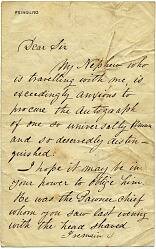 Dear Sir
My Nephew who
is travelling with me is
exceedingly anxious to
procure the autograph
of one so universally known
and so deservedly distin-
guished.
I hope it may be in
your power to oblige him.
He was the Pawnee Chief
whom you saw last evening
with the head shaved
I remain